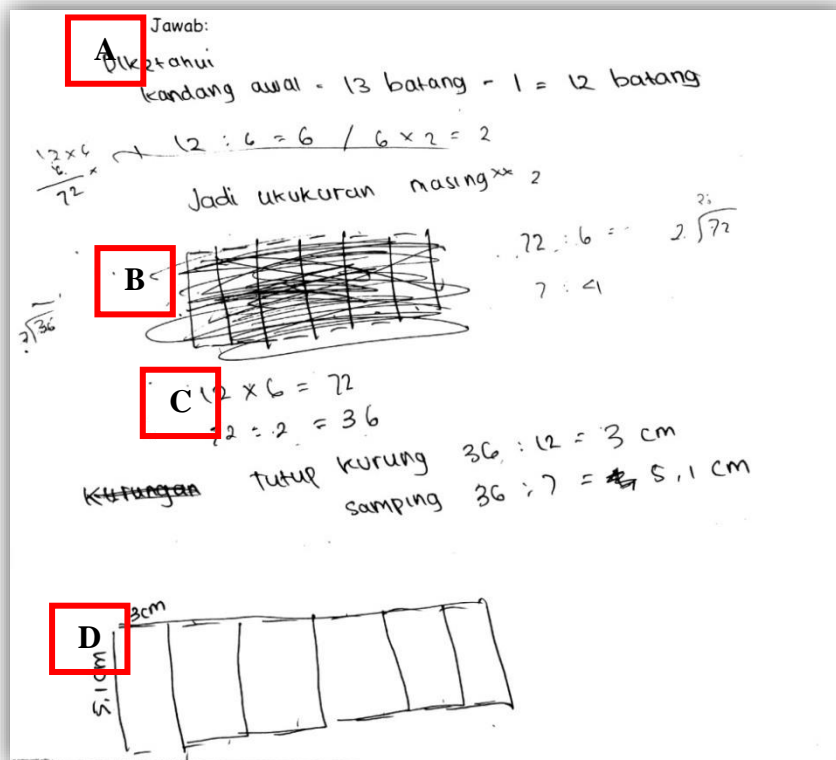 Jawab:
A
Diketahui
kandang awal = 13 batang - 1 = 12 batang
12 x 6
6 x
72
12 : 6 = 6 / 6 x 2 = 2
Jadi ukukuran masing xx 2
B
72 : 6 =
2 √72
7 : 4
2 √36
C
12 x 6 = 72
72 : 2 = 36
Kurungan tutup kurung 36 : 12 = 3 cm
samping 36 : 7 = 5,1 cm
D
3cm
5,1cm